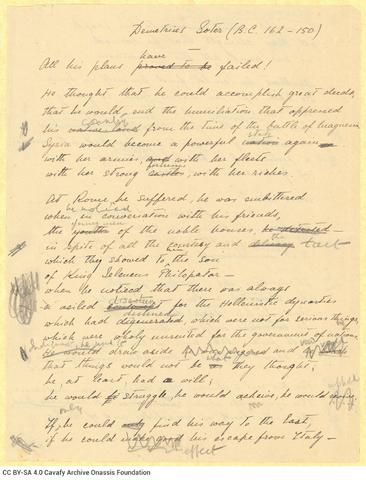 Demetrius Soter (B.C. 162 – 150)
have
All his plans proved to be failed!
He thought that he could accomplish great deeds,
that he would end the humiliation that oppressed
country
his native land from the time of the battle of Magnesia
state
Syria would become a powerful nation again
with her armies, and with her fleets
fortresses
with her strong castles, with her riches.
At Rome he suffered, he was embittered
he noticed
when in conversation with his friends,
young men
the youths of the noble houses,
in spite of all the courtesy and tact
which they showed to the son
of King Seleucus Philopator –
when he noticed that there was always
a veiled for the Hellenistic dynasties
declined
which had degenerated, which were not for serious things,
which were wholy unsuited for the government of nations
He would draw aside and
that things would not be as they thought;
he, at least, had a will;
he would struggle, he would acheive, he would
only
If he could only find his way to the East,
if he could make good his escape from Italy –
effect
CC BY-SA 4.0 Cavafy Archive Onassis Foundation